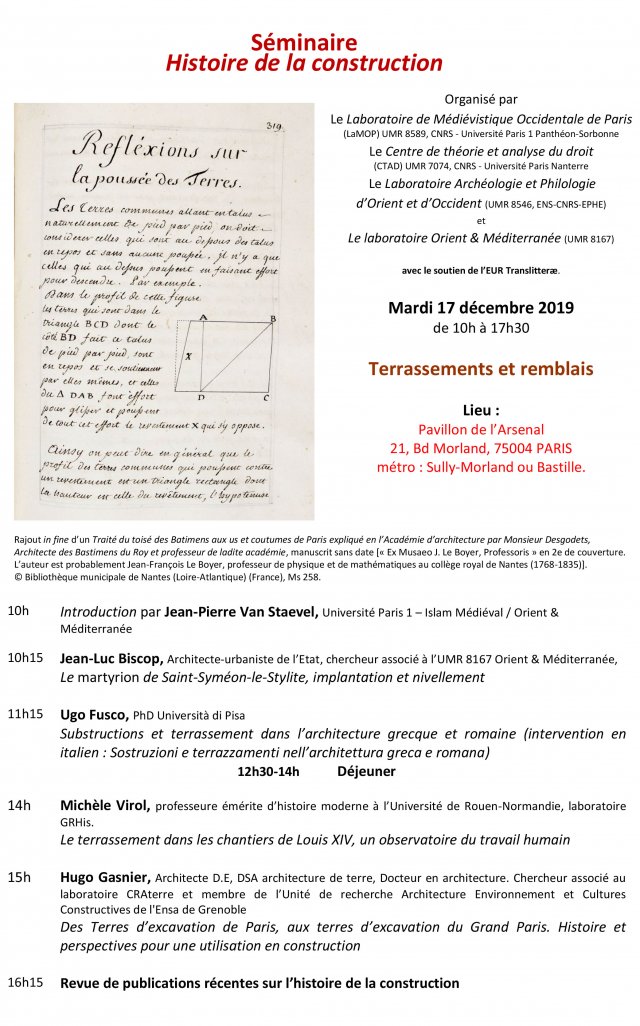 Séminaire
Histoire de la construction
319.
Refléxions sur
la poussée des Terres.
Les Terres communes allant en talus
naturellement De pied par pied, on doit
considerer celles qui sont au dessous des talus
en repos et sans aucune poupée. il n'y a que
celles qui au dessus poupent en faisant effort
pour descendre. Par exemple.
Dans le profil de cette figure
les terres qui sont dans le
triangle BCD dont le
côté BD fait ce talus
de pied par pied, sont
en repos et se soutiennent
par elles mêmes, et celles
du Δ DAB font effort
pour glisser et poupent
de tout cet effort le revertement X qui s'y oppose.
A
B
X
D
C
Ainsy on peut dire en général que le
profil des terres communes qui poupent contre
un revertement est un triangle rectangle dont
la hauteur est celle du revêtement, l'hypoténuse
Organisé par
Le Laboratoire de Médiévistique Occidentale de Paris
(LaMOP) UMR 8589, CNRS - Université Paris 1 Panthéon-Sorbonne
Le Centre de théorie et analyse du droit
(CTAD) UMR 7074, CNRS - Université Paris Nanterre
Le Laboratoire Archéologie et Philologie
d'Orient et d'Occident (UMR 8546, ENS-CNRS-EPHE)
et
Le laboratoire Orient & Méditerranée (UMR 8167)
avec le soutien de l'EUR Translitteræ.
Mardi 17 décembre 2019
de 10h à 17h30
Terrassements et remblais
Lieu :
Pavillon de l'Arsenal
21, Bd Morland, 75004 PARIS
métro : Sully-Morland ou Bastille.
Rajout in fine d'un Traité du toisé des Batimens aux us et coutumes de Paris expliqué en l'Académie d'architecture par Monsieur Desgodets,
Architecte des Bastimens du Roy et professeur de ladite académie, manuscrit sans date [« Ex Musaeo J. Le Boyer, Professoris » en 2e de couverture.
L'auteur est probablement Jean-François Le Boyer, professeur de physique et de mathématiques au collège royal de Nantes (1768-1835)].
© Bibliothèque municipale de Nantes (Loire-Atlantique) (France), Ms 258.
10h Introduction par Jean-Pierre Van Staevel, Université Paris 1 – Islam Médiéval / Orient &
Méditerranée
10h15 Jean-Luc Biscop, Architecte-urbaniste de l'Etat, chercheur associé à l'UMR 8167 Orient & Méditerranée,
Le martyrion de Saint-Syméon-le-Stylite, implantation et nivellement
11h15 Ugo Fusco, PhD Università di Pisa
Substructions et terrassement dans l'architecture grecque et romaine (intervention en
italien : Sostruzioni e terrazzamenti nell'architettura greca e romana)
12h30-14h Déjeuner
14h Michèle Virol, professeure émérite d'histoire moderne à l'Université de Rouen-Normandie, laboratoire
GRHis.
Le terrassement dans les chantiers de Louis XIV, un observatoire du travail humain
15h Hugo Gasnier, Architecte D.E, DSA architecture de terre, Docteur en architecture. Chercheur associé au
laboratoire CRAterre et membre de l'Unité de recherche Architecture Environnement et Cultures
Constructives de l'Ensa de Grenoble
Des Terres d'excavation de Paris, aux terres d'excavation du Grand Paris. Histoire et
perspectives pour une utilisation en construction
16h15 Revue de publications récentes sur l'histoire de la construction